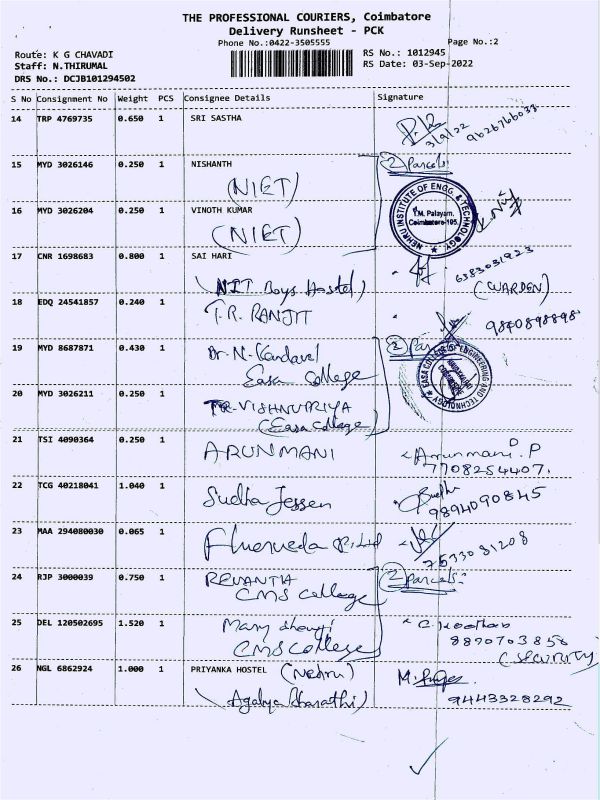 THE PROFESSIONAL COURIERS, Coimbatore
Delivery Runsheet - PCK
Phone No.:0422-3505555
Page No.:2
Route: K G CHAVADI
Staff: N.THIRUMAL
DRS No.: DCJB101294502
RS No.: 1012945
RS Date: 03-Sep-2022
S No Consignment No Weight PCS Consignee Details Signature
14 TRP 4769735 0.650 1 SRI SASTHA
3/9/22 9626766038
15 MYD 3026146 0.250 1 NISHANTH
(NIET)
2 Parcels
16 MYD 3026204 0.250 1 VINOTH KUMAR
(NIET)
NEHRU INSTITUTE OF ENGG. & TECHNOLOGY
T.M. Palayam,
Coimbatore-105
17 CNR 1698683 0.800 1 SAI HARI
(NIT Boys Hostel)
6383031923
(WARDEN)
18 EDQ 24541857 0.240 1 T.R. RANJIT
9840898898
19 MYD 8687871 0.430 1 Dr. N. Kandavel
Easa College
2
EASA COLLEGE OF ENGINEERING AND TECHNOLOGY
20 MYD 3026211 0.250 1 VISHNUPRIYA
(Easa College)
21 TSI 4090364 0.250 1 ARUNMANI
Arunmani.P
7708254407.
22 TCG 40218041 1.040 1 Sudha Jessen
Sudha
9894090845
23 MAA 294080030 0.065 1
7533081208
24 RJP 3000039 0.750 1 REVANTH
CMS College
2 parcels
25 DEL 120502695 1.520 1 Mary
CMS College
8890703858
(Security)
26 NGL 6862924 1.000 1 PRIYANKA HOSTEL (Nehru)
9443328292